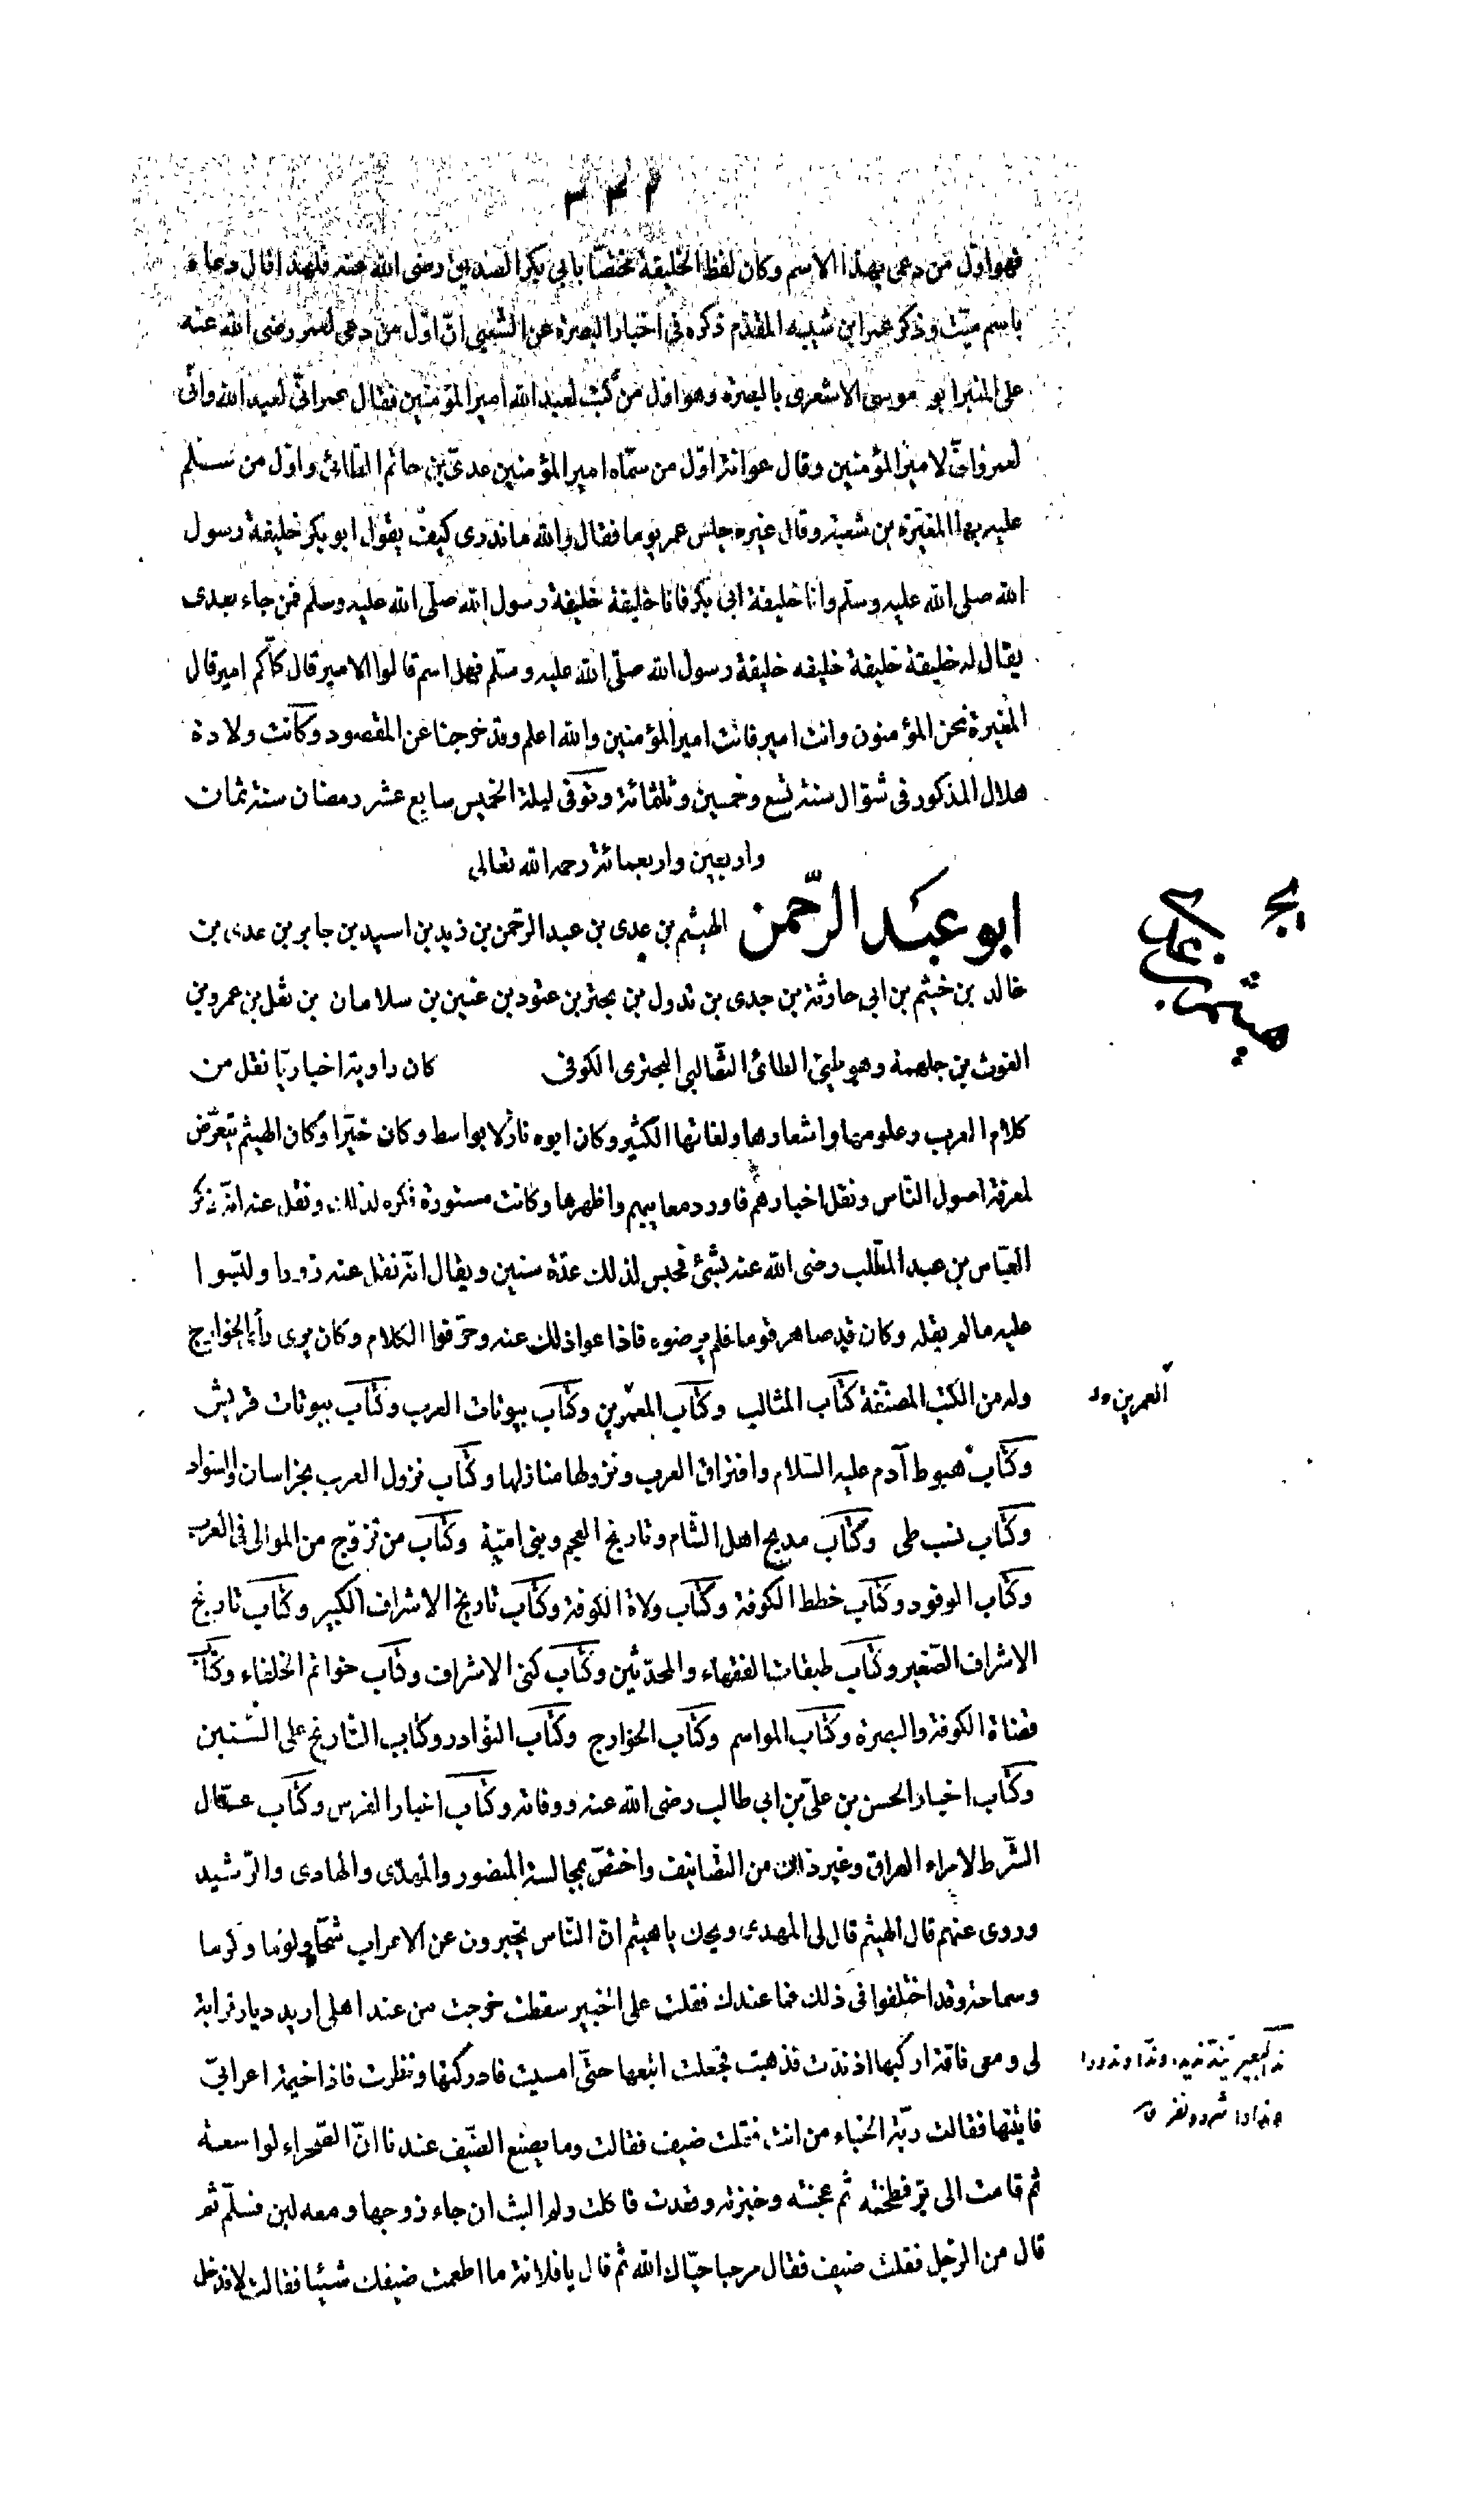 فهو اوّل من دعى بهذا الاسم وكان لفظ الخليفة مختصّا بابي بكر الصديق رضى الله عنه فلهذا قال دعاه
باسم ميّت وذكر عمر ابن شيبه المقدّم ذكره في اخبار البصرة عن الشعبي انّ اوّل من دعى لعمر رضى الله عنه
على المنبر ابو موسى الاشعرى بالبصرة وهو اوّل من كتب لعبد الله امير المؤمنين فقال عمر انّي لعبد الله وانّى
لعمر وانّى لامير المؤمنين وقال عوانة اوّل من سمّاه امير المؤمنين عدىّ بن حاتم الطائى واوّل من سلم
عليه بها المغيرة بن شعبة وقال غيره جلس عمر يوما فقال والله ما ندرى كيف يقول ابو بكر خليفة رسول
الله صلى الله عليه وسلّم وانا خليفة ابى بكر فانا خليفة خليفة رسول الله صلّى الله عليه وسلّم فمن جاء بعدى
يقال له خليفة خليفة خليفه خليفة رسول الله صلّى الله عليه وسلّم فهل اسم قالوا الامير قال كلّكم امير قال
المغيرة نحن المؤمنون وانت اميرنا فانت امير المؤمنين والله اعلم وقد خرجنا عن المقصود وكانت ولادة
هلال المذكور فى شوّال سنة تسع وخمسين وثلثمائة وتوفى ليلة الخميس سابع عشر رمضان سنة ثمان
واربعين واربعمائة رحمه الله تعالى
ابو عبد الرّحمن الهيثم بن عدى بن عبد الرحمن بن زيد بن اسيد بن جابر بن عدى بن
خالد بن خثيم بن ابى حارثة بن جدى بن تدول بن بحتر بن عتود بن عنين بن سلامان بن ثعل بن عمرو بن
الغوث بن جلهمة وهو طيئ الطائى الثّعالبي البحترى الكوفى كان راوية اخباريّا نقل من
كلام العرب وعلومها واشعارها ولغاتها الكثير وكان ابوه نازلا بواسط وكان خيّرا وكان الهيثم يتعرّض
لمعرفة اصول النّاس ونقل اخبارهم فاورد معايبهم واظهرها وكانت مستورة فكره لذلك ونقل عنه انّه ذكر
العبّاس بن عبد المطّلب رضى الله عنه بشئ فحبس لذلك عدّة سنين ويقال انّه نقل عنه زورا ولبّسوا
عليه ما لم يقله وكان قد صاهر قوما فلم يرضوه فاذاعوا ذلك عنه وحرّفوا الكلام وكان يرى رأى الخوارج
وله من الكتب المصنّفة كتاب المثالب وكتاب المعمّرين وكتاب بيوتات العرب وكتاب بيوتات قريش
العمرين
وكتاب هبوط آدم عليه السّلام وافتراق العرب ونزولها منازلها وكتاب نزول العرب بخراسان والسواد
وكتاب نسب طى وكتاب مديح اهل الشّام وتاريخ العجم وبنى اميّة وكتاب من تزوّج من الموالى فى العرب
وكتاب الوفود وكتاب خطط الكوفة وكتاب ولاة الكوفة وكتاب تاريخ الاشراف الكبير وكتاب تاريخ
الاشراف الصّغير وكتاب طبقات الفقهاء والمحدّثين وكتاب كنى الاشراف وكتاب خواتم الخلفاء وكتاب
قضاة الكوفة والبصرة وكتاب المواسم وكتاب الخوارج وكتاب النّوادر وكتاب التّاريخ على السّنين
وكتاب اخبار الحسن بن علىّ بن ابى طالب رضى الله عنه ووفاته وكتاب اخبار الفرس وكتاب عمّال
الشّرط لامراء العراق وغير ذلك من التّصانيف واختصّ بمجالسة المنصور والمهدى والهادى والرّشيد
وروى عنهم قال الهيثم قال لى المهدى ويحك يا هيثم انّ النّاس يخبرون عن الاعراب شحّا ولؤما وكرما
وسماحة وقد اختلفوا فى ذلك فما عندك فقلت على الخبير سقطت خرجت من عند اهلى اريد ديار قرابة
لى ومعى ناقة اركبها اذ ندّت فذهبت فجعلت اتبعها حتّى امسيت فادركتها ونظرت فاذا خيمة اعرابىّ
فاتيتها فقالت ربّة الخباء من انت فقلت ضيف فقالت وما يصنع الضّيف عندنا انّ الصّحراء لواسعة
ثم قامت الى برّ فطحنته ثم عجنته وخبزته وقعدت فاكلت ولم البث ان جاء زوجها ومعه لبن فسلّم ثم
قال من الرّجل فقلت ضيف فقال مرحبا حيّاك الله ثم قال يا فلانة ما اطعمت ضيفك شيئا فقالت لا فدخل